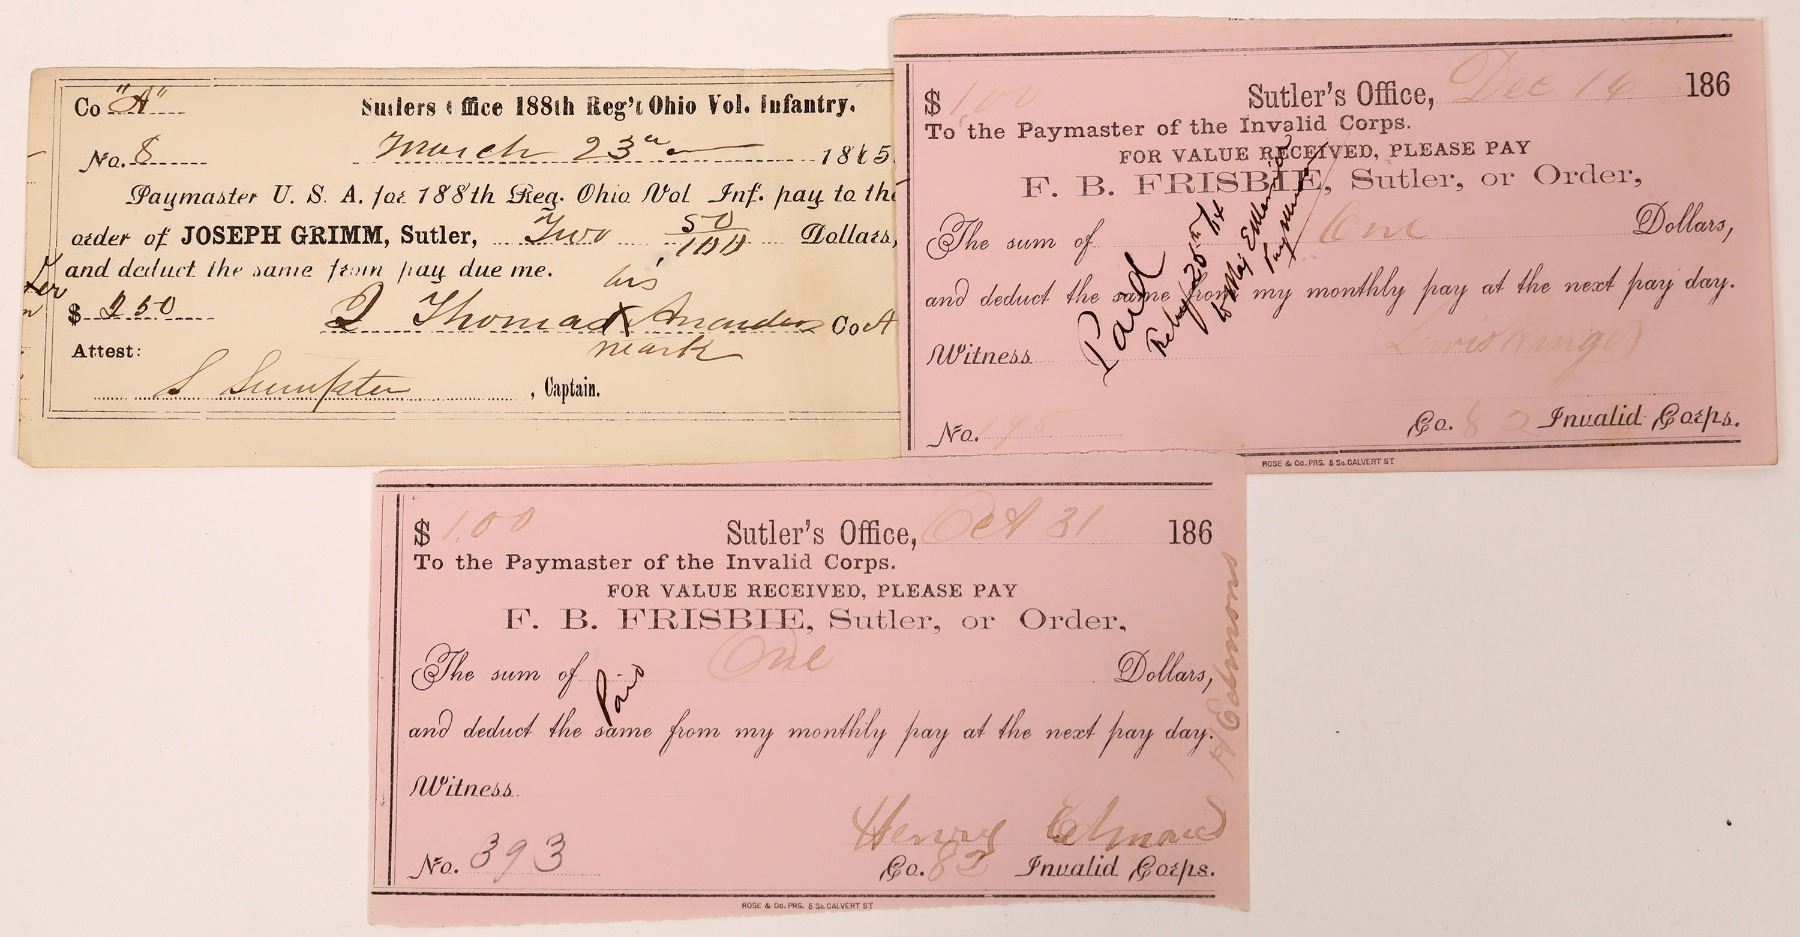 Co "A" Sutlers Office 188th Reg't Ohio Vol. Infantry.
No. 8 March 23 1865.
Paymaster U. S. A. for 188th Reg. Ohio Vol Inf. pay to the
order of JOSEPH GRIMM, Sutler, Two 50/100 Dollars,
and deduct the same from pay due me.
his
$ 2 50 Thomas X Co A
mark
Attest:
S Sumpter, Captain.
$ 1,00 Sutler's Office, Dec 16 186
To the Paymaster of the Invalid Corps.
FOR VALUE RECEIVED, PLEASE PAY
F. B. FRISBIE, Sutler, or Order,
The sum of One Dollars,
and deduct the same from my monthly pay at the next pay day.
Paid
Witness Lewis
No. 195 Co. 82 Invalid Corps.
ROSE & CO. PRS. 5 So. CALVERT ST
$ 1.00 Sutler's Office, Oct 31 186
To the Paymaster of the Invalid Corps.
FOR VALUE RECEIVED, PLEASE PAY
F. B. FRISBIE, Sutler, or Order,
The sum of One Dollars,
Paid
and deduct the same from my monthly pay at the next pay day.
Witness
Henry Edmond
No. 393 Co. 82 Invalid Corps.
ROSE & CO. PRS. 5 So. CALVERT ST
H Edmons